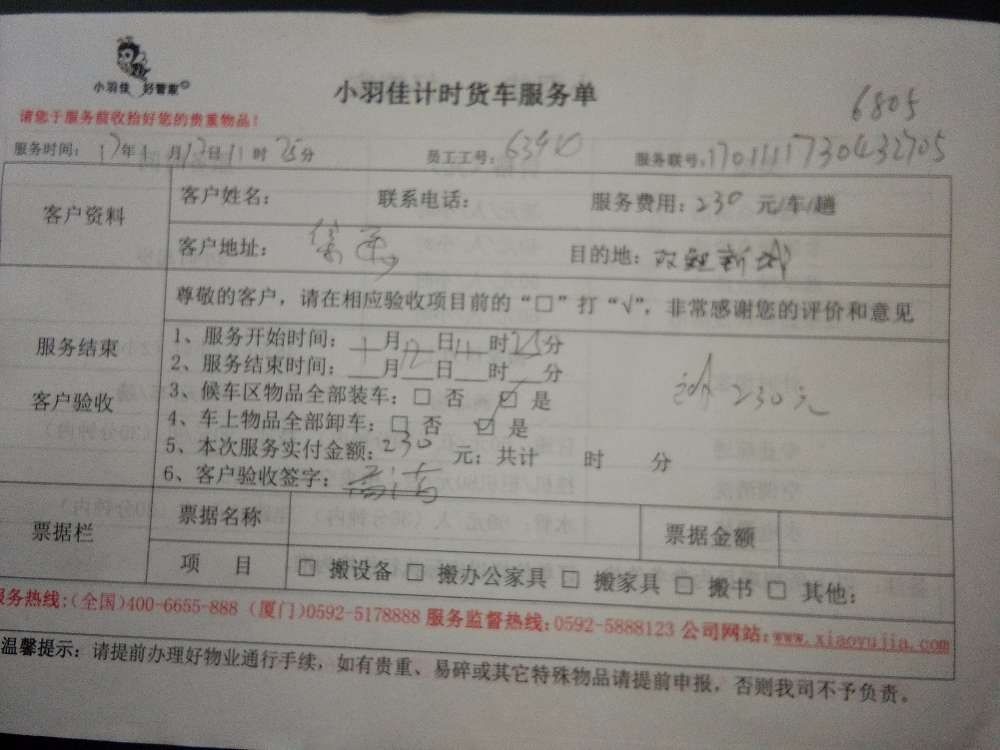 小羽佳 好管家
小羽佳计时货车服务单
6805
请您于服务前收拾好您的贵重物品!
服务时间: 17年1月12日11时25分 员工工号: 服务联号: 1701111730432705
客户资料
客户姓名: 联系电话: 服务费用: 230 元/车/趟
客户地址: 目的地: 新城
服务结束
客户验收
尊敬的客户,请在相应验收项目前的“□”打“√”,非常感谢您的评价和意见
1、服务开始时间: 1月12日11时25分
2、服务结束时间: ___月___日___时___分
3、候车区物品全部装车: □ 否 ☑ 是
4、车上物品全部卸车: □ 否 ☑ 是
5、本次服务实付金额: 230 元; 共计 时 分
6、客户验收签字:
230元
票据栏
票据名称 票据金额
项 目 □ 搬设备 □ 搬办公家具 □ 搬家具 □ 搬书 □ 其他:
服务热线:(全国)400-6655-888 (厦门)0592-5178888 服务监督热线:0592-5888123 公司网站:www.xiaoyujia.com
温馨提示: 请提前办理好物业通行手续,如有贵重、易碎或其它特殊物品请提前申报,否则我司不予负责。